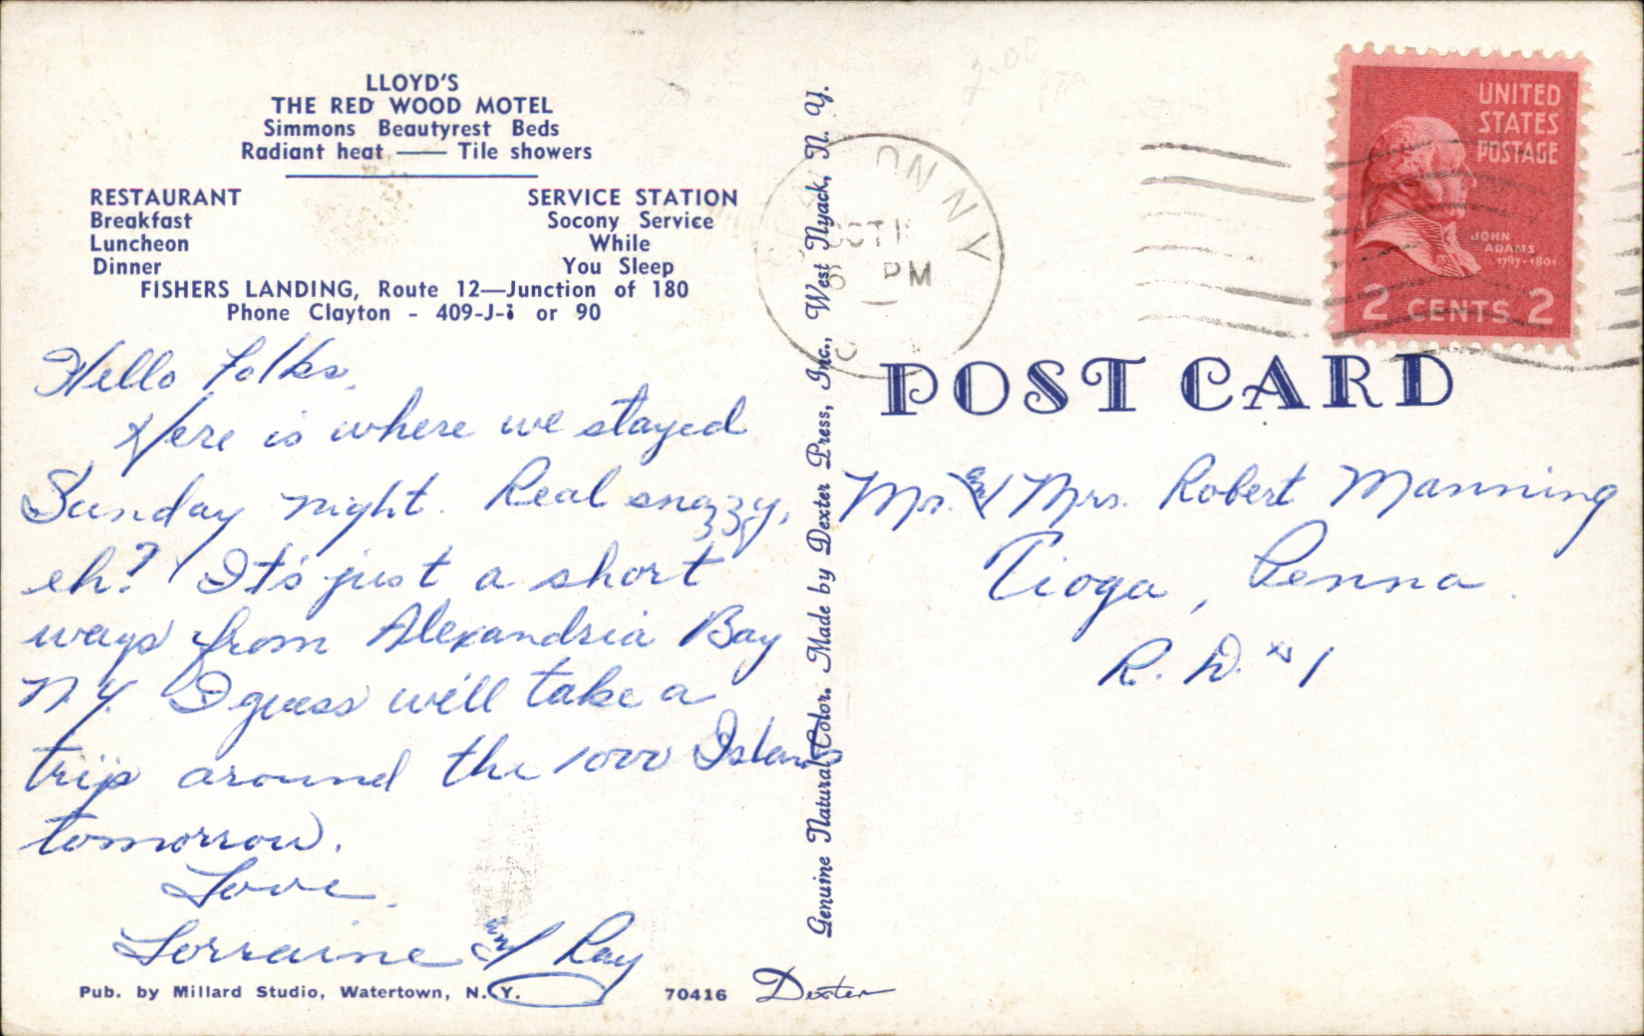 LLOYD'S
THE RED WOOD MOTEL
Simmons Beautyrest Beds
Radiant heat —— Tile showers
RESTAURANT
Breakfast
Luncheon
Dinner
SERVICE STATION
Socony Service
While
You Sleep
FISHERS LANDING, Route 12—Junction of 180
Phone Clayton - 409-J-1 or 90
Hello Folks,
Here is where we stayed
Sunday night. Real snazzy,
eh? It's just a short
ways from Alexandria Bay
N.Y. I guess we'll take a
trip around the 1000 Islands
tomorrow.
Love,
Lorraine and Ray
Pub. by Millard Studio, Watertown, N. Y.
70416
Dexter
Genuine Natural Color. Made by Dexter Press, Inc., West Nyack, N. Y.
N NY
OCT 1
PM
UNITED
STATES
POSTAGE
JOHN
ADAMS
1797-1801
2 CENTS 2
POST CARD
Mr. and Mrs. Robert Manning
Tioga, Penna.
R. D. #1